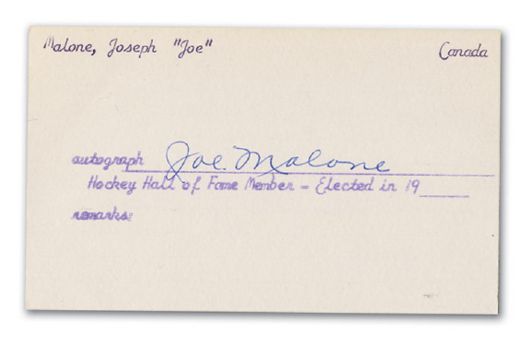 Malone, Joseph "Joe" Canada
autograph Joe Malone
Hockey Hall of Fame Member - Elected in 19____
remarks: